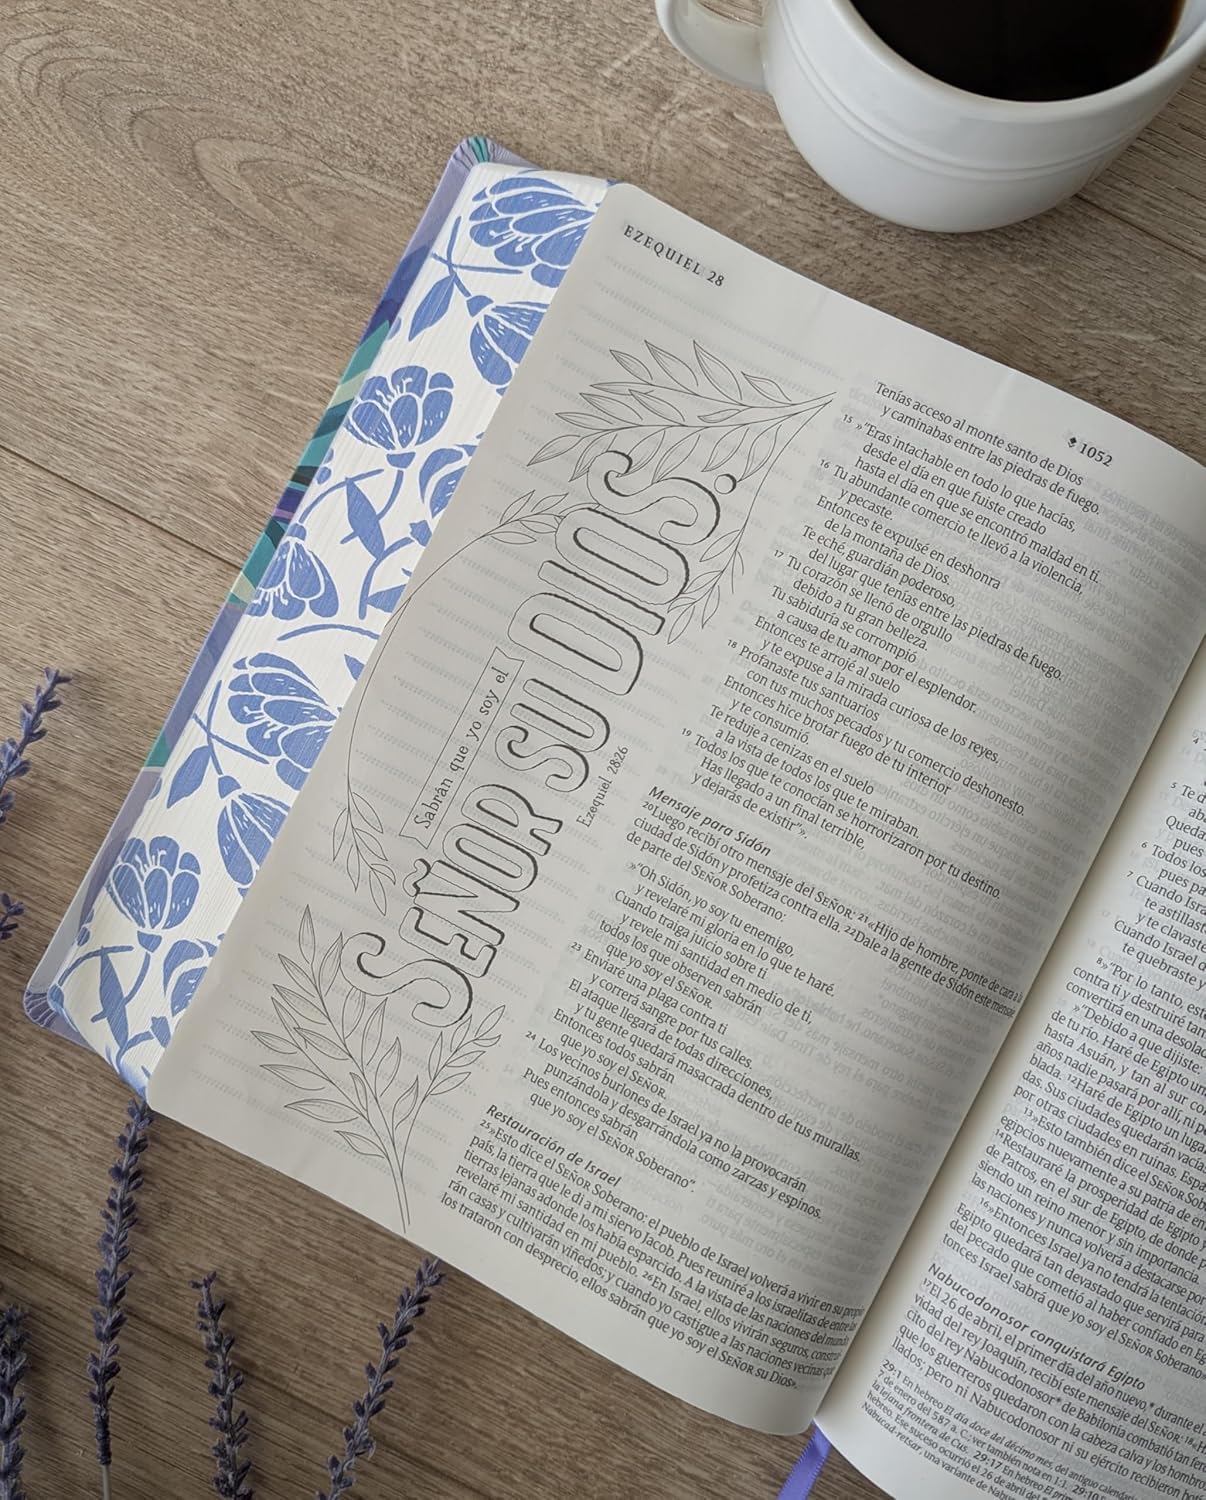 EZEQUIEL 28
1052
Sabrán que yo soy el
SEÑOR SU DIOS.
Ezequiel 28:26
Tenías acceso al monte santo de Dios
y caminabas entre las piedras de fuego.
15 »"Eras intachable en todo lo que hacías,
desde el día en que fuiste creado
hasta el día en que se encontró maldad en ti.
16 Tu abundante comercio te llevó a la violencia,
y pecaste.
Entonces te expulsé en deshonra
de la montaña de Dios.
Te eché guardián poderoso,
del lugar que tenías entre las piedras de fuego.
17 Tu corazón se llenó de orgullo
debido a tu gran belleza.
Tu sabiduría se corrompió
a causa de tu amor por el esplendor.
Entonces te arrojé al suelo
y te expuse a la mirada curiosa de los reyes.
18 Profanaste tus santuarios
con tus muchos pecados y tu comercio deshonesto.
Entonces hice brotar fuego de tu interior
y te consumió.
Te reduje a cenizas en el suelo
a la vista de todos los que te miraban.
19 Todos los que te conocían se horrorizaron por tu destino.
Has llegado a un final terrible,
y dejarás de existir"».
Mensaje para Sidón
20 Luego recibí otro mensaje del SEÑOR: 21 «Hijo de hombre, ponte de cara a la
ciudad de Sidón y profetiza contra ella. 22 Dale a la gente de Sidón este mensaje
de parte del SEÑOR Soberano:
»"Oh Sidón, yo soy tu enemigo,
y revelaré mi gloria en lo que te haré.
Cuando traiga juicio sobre ti
y revele mi santidad en medio de ti,
todos los que observen sabrán
que yo soy el SEÑOR.
23 Enviaré una plaga contra ti
y correrá sangre por tus calles.
El ataque llegará de todas direcciones,
y tu gente quedará masacrada dentro de tus murallas.
Entonces todos sabrán
que yo soy el SEÑOR.
24 Los vecinos burlones de Israel ya no la provocarán
punzándola y desgarrándola como zarzas y espinos.
Pues entonces sabrán
que yo soy el SEÑOR Soberano".
Restauración de Israel
25 »Esto dice el SEÑOR Soberano: el pueblo de Israel volverá a vivir en su propio
país, la tierra que le di a mi siervo Jacob. Pues reuniré a los israelitas de entre las
tierras lejanas adonde los había esparcido. A la vista de las naciones del mundo
revelaré mi santidad en mi pueblo. 26 En Israel, ellos vivirán seguros, construi
rán casas y cultivarán viñedos; y cuando yo castigue a las naciones vecinas que
los trataron con desprecio, ellos sabrán que yo soy el SEÑOR su Dios».
4
5 Te d
Queda
pues
6 Todos los
pues pa
7 Cuando Isra
te astillast
y te clavaste
Cuando Israel
te quebraste y
8 »"Por lo tanto, est
contra ti y destruiré tan
convertirá en una desolac
»"Debido a que dijiste:
de tu río. Haré de Egipto un
hasta Asuán, y tan al sur co
años nadie pasará por allí, ni p
blada. 12 Haré de Egipto un luga
das. Sus ciudades quedarán vacía
por otras ciudades en ruinas. Espa
13 »Esto también dice el SEÑOR Sob
egipcios nuevamente a su patria de en
14 Restauraré la prosperidad de Egipto y
de Patros, en el sur de Egipto, de donde p
siendo un reino menor y sin importancia.
las naciones y nunca volverá a destacarse por
16 »Entonces Israel ya no tendrá la tentación
Egipto quedará tan devastado que servirá para
del pecado que cometió al haber confiado en Eg
tonces Israel sabrá que yo soy el SEÑOR Soberano
Nabucodonosor conquistará Egipto
17 El 26 de abril, el primer día del año nuevo,* durante el
vidad del rey Joaquín, recibí este mensaje del SEÑOR: 18 «H
cito del rey Nabucodonosor* de Babilonia combatió tan fer
que los guerreros quedaron con la cabeza calva y los hombro
llados; pero ni Nabucodonosor ni su ejército recibieron bot
29:1 En hebreo El día doce del décimo mes, del antiguo calendari
7 de enero del 587 a. C.; ver también nota en 1:1. 29:10
la lejana frontera de Cus. 29:17 En hebreo El prim
hebreo. Ese suceso ocurrió el 26 de abril del
Nabucad-retsar, una variante de Nabuc